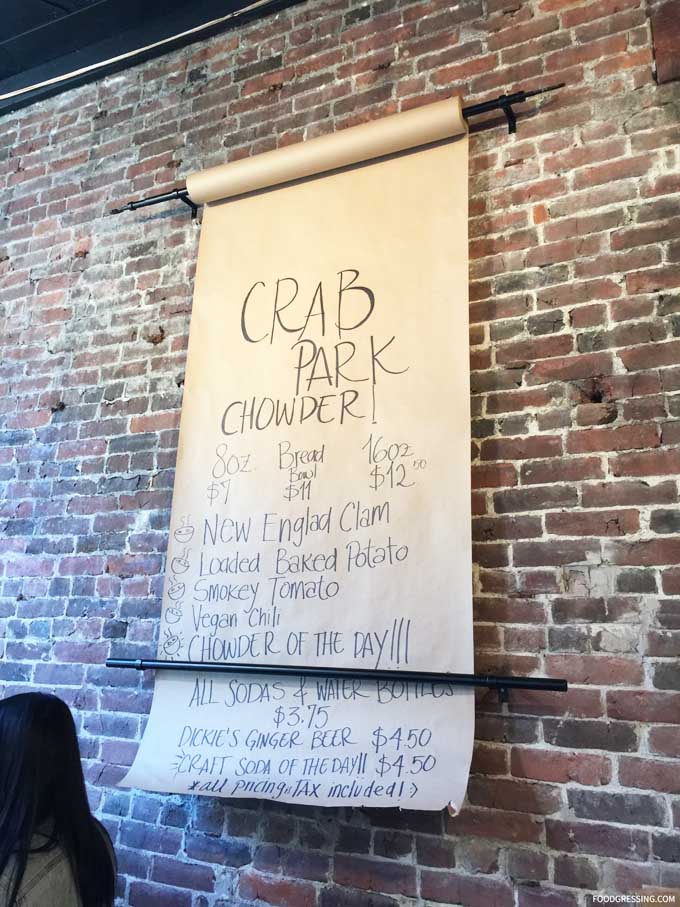 CRAB
PARK
CHOWDER!
8oz Bread Bowl 16oz
$7 $11 $12.50
New Englad Clam
Loaded Baked Potato
Smokey Tomato
Vegan Chili
CHOWDER OF THE DAY!!!
ALL SODAS & WATER BOTTLES
$3.75
DICKIE'S GINGER BEER $4.50
CRAFT SODA OF THE DAY!! $4.50
*all pricing TAX included! :)
FOODGRESSING.COM